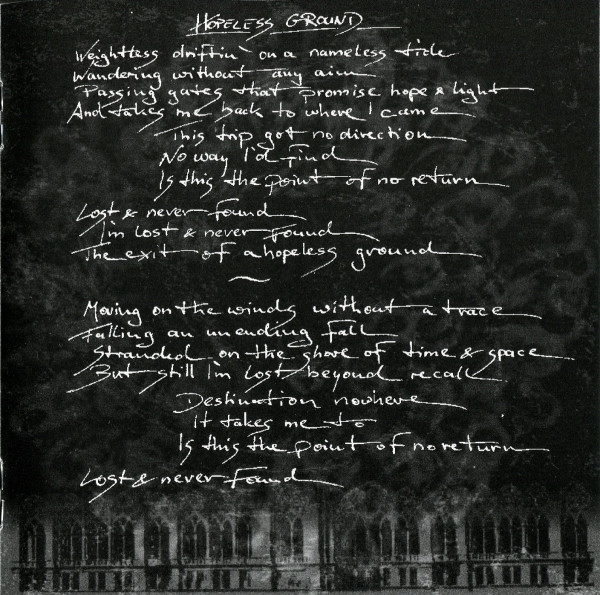 HOPELESS GROUND
Weightless driftin' on a nameless tide
Wandering without any aim
Passing gates that promise hope & light
And takes me back to where I came
This trip got no direction
No way I'd find
Is this the point of no return
Lost & never found
I'm lost & never found
The exit of a hopeless ground
~
Moving on the winds without a trace
Falling an unending fall
Stranded on the shore of time & space
But still I'm lost beyond recall
Destination nowhere
It takes me to
Is this the point of no return
Lost & never found